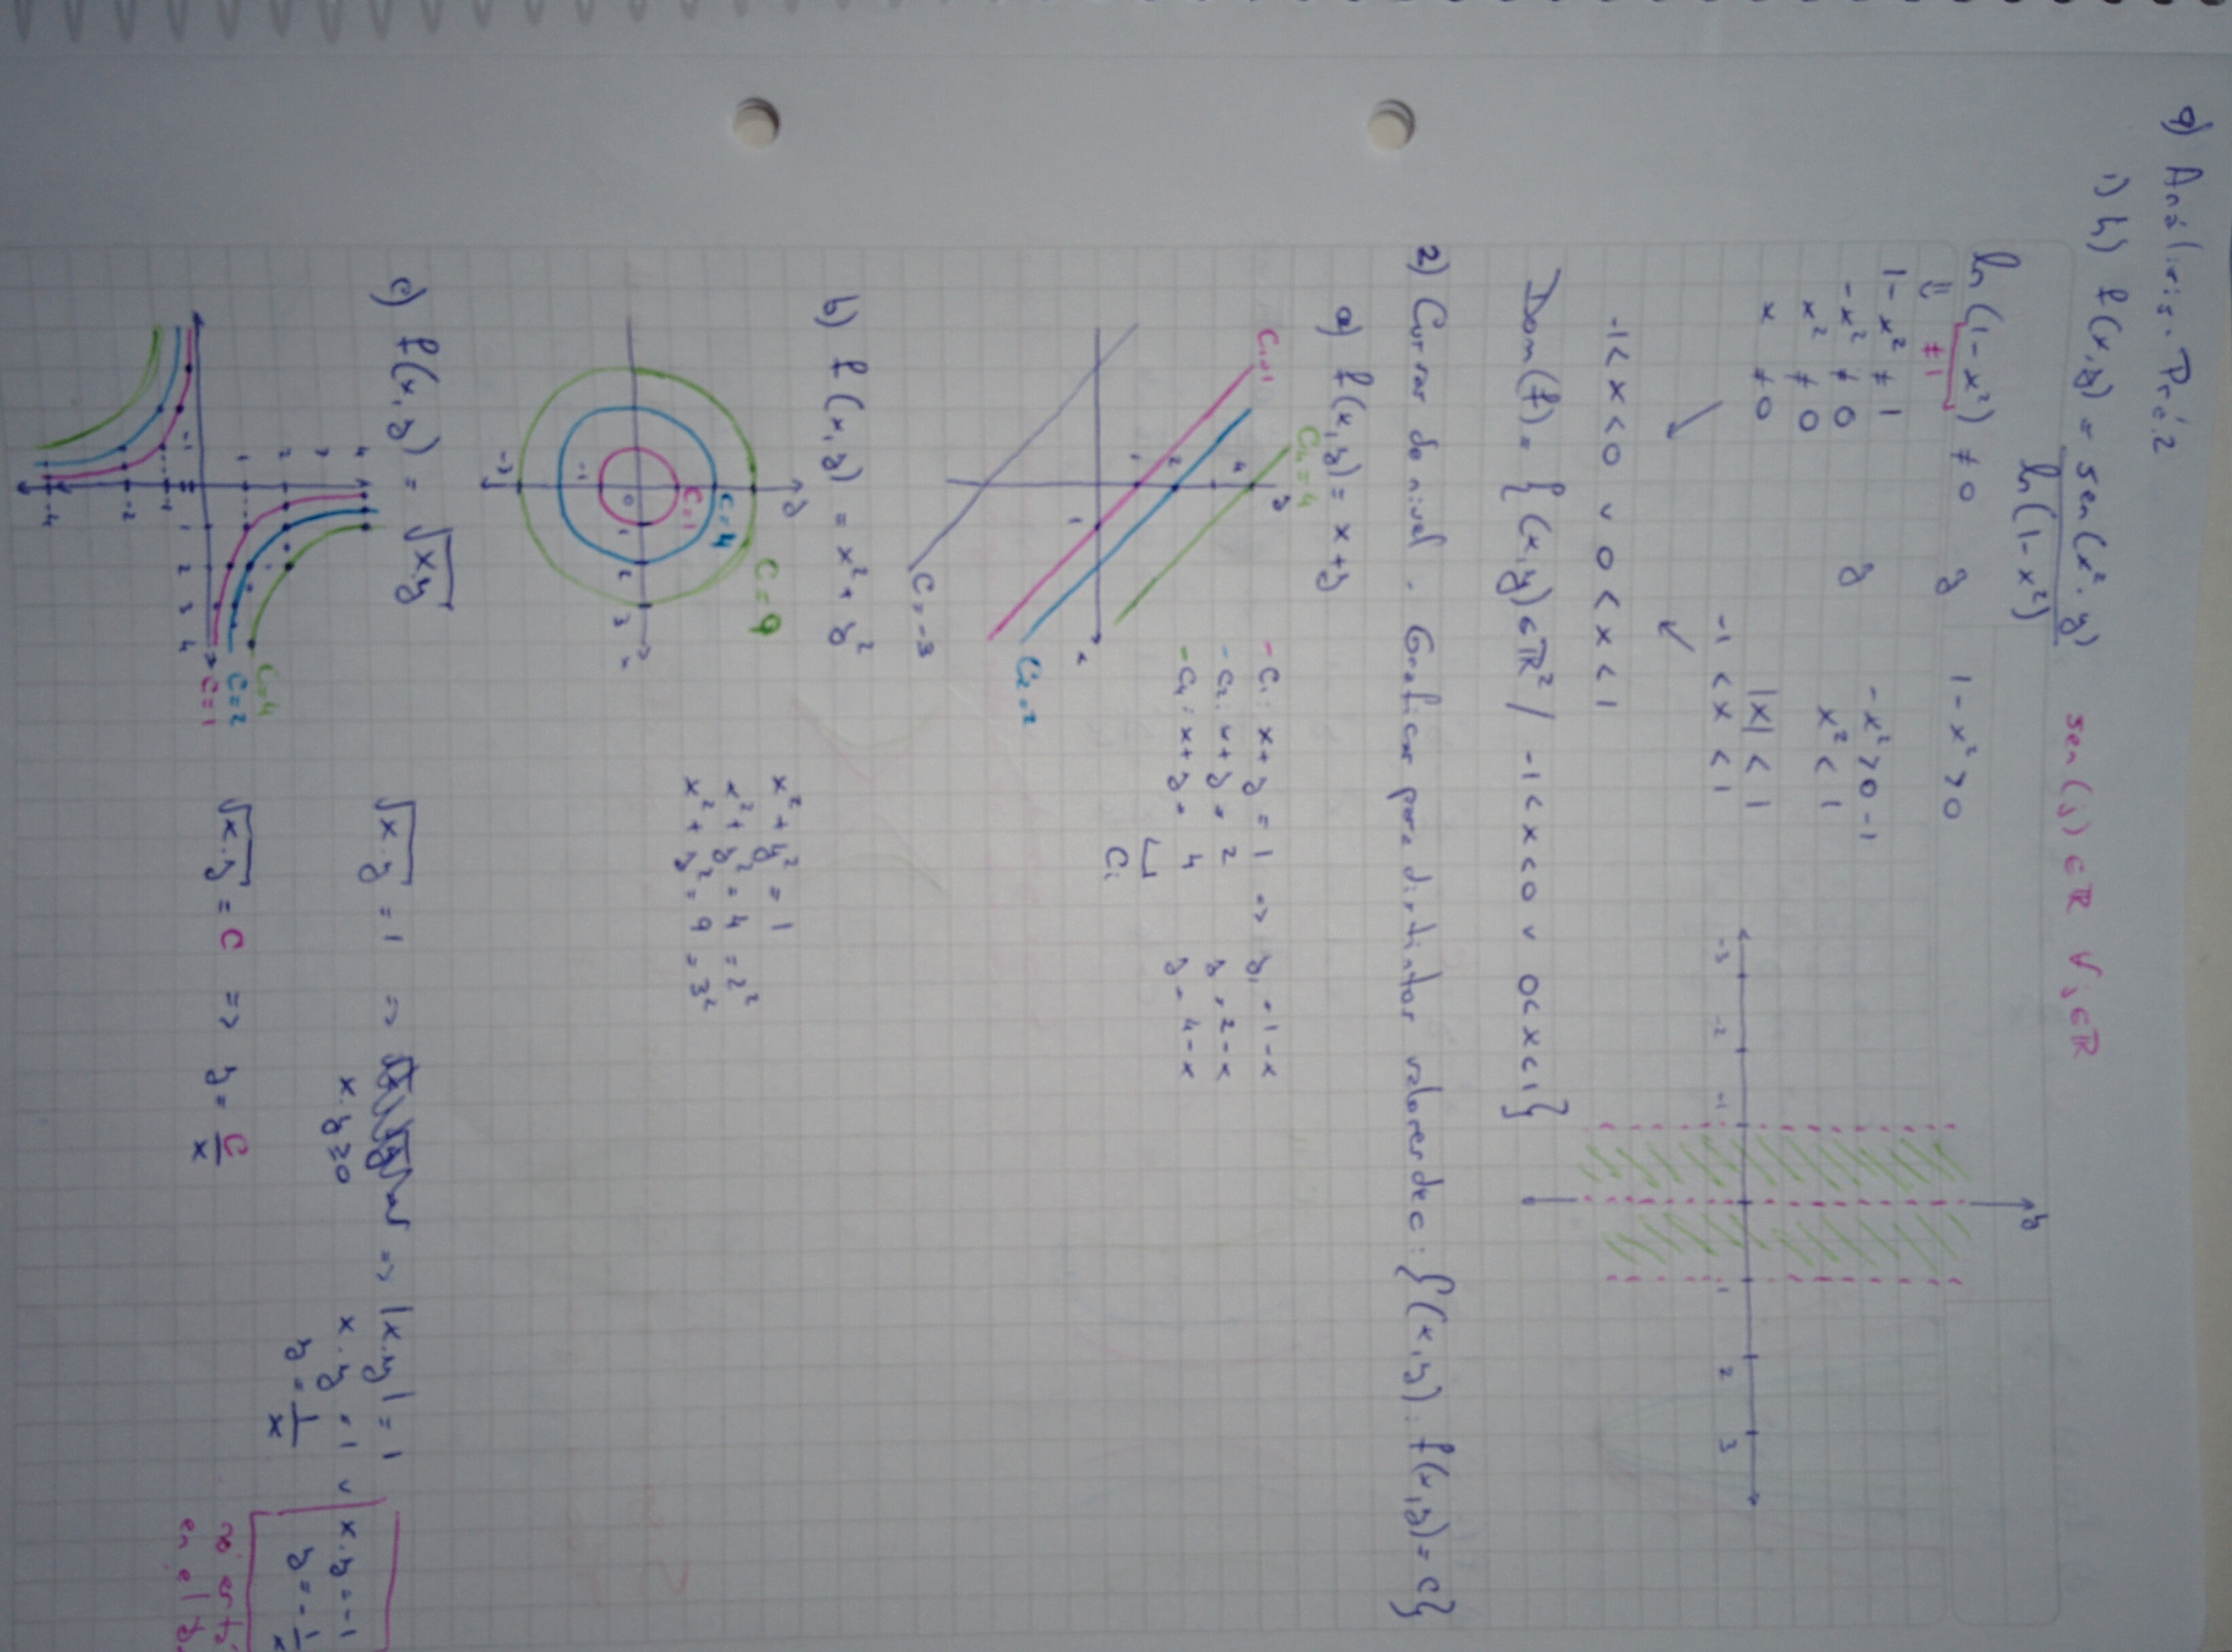 9) Análisis. Prá.2
1) h) f(x,y) = sen(x²·y) / ln(1-x²) sen(j) ∈ ℝ ∀ j ∈ ℝ
ln(1-x²) ≠ 0 y 1-x² > 0
⇓ ≠1
1-x² ≠ 1 y -x² > 0 -1
-x² ≠ 0 x² < 1
x² ≠ 0
x ≠ 0 |x| < 1
-1 < x < 1
y
-3 -2 -1 1 2 3
-1<x<0 v 0<x<1
Dom(f) = {(x,y) ∈ ℝ² / -1<x<0 v 0<x<1}
2) Curvas de nivel. Graficar para distintos valores de c: {(x,y): f(x,y) = c}
a) f(x,y) = x+y
C₄=4
C₁=1 y
4
2
1
1 x
C₂=2
C=-3
- C₁: x+y = 1 => y₁ = 1-x
- C₂: x+y = 2 y = 2-x
- C₄: x+y = 4 y = 4-x
Cᵢ
b) f(x,y) = x² + y²
y
C=9
C=4
C=1
0 1 2 3 x
-1
-3
x² + y² = 1
x² + y² = 4 = 2²
x² + y² = 9 = 3²
c) f(x,y) = √x.y
4
3
2
1
C=4
C=2
C=1
-1 1 2 3 4
-1
-2
-4
√x.y = 1 => => |x.y| = 1
x.y ≥ 0 x.y = 1 v x.y = -1
y = 1/x y = -1/x
√x.y = C => y = C/x
no está
en el